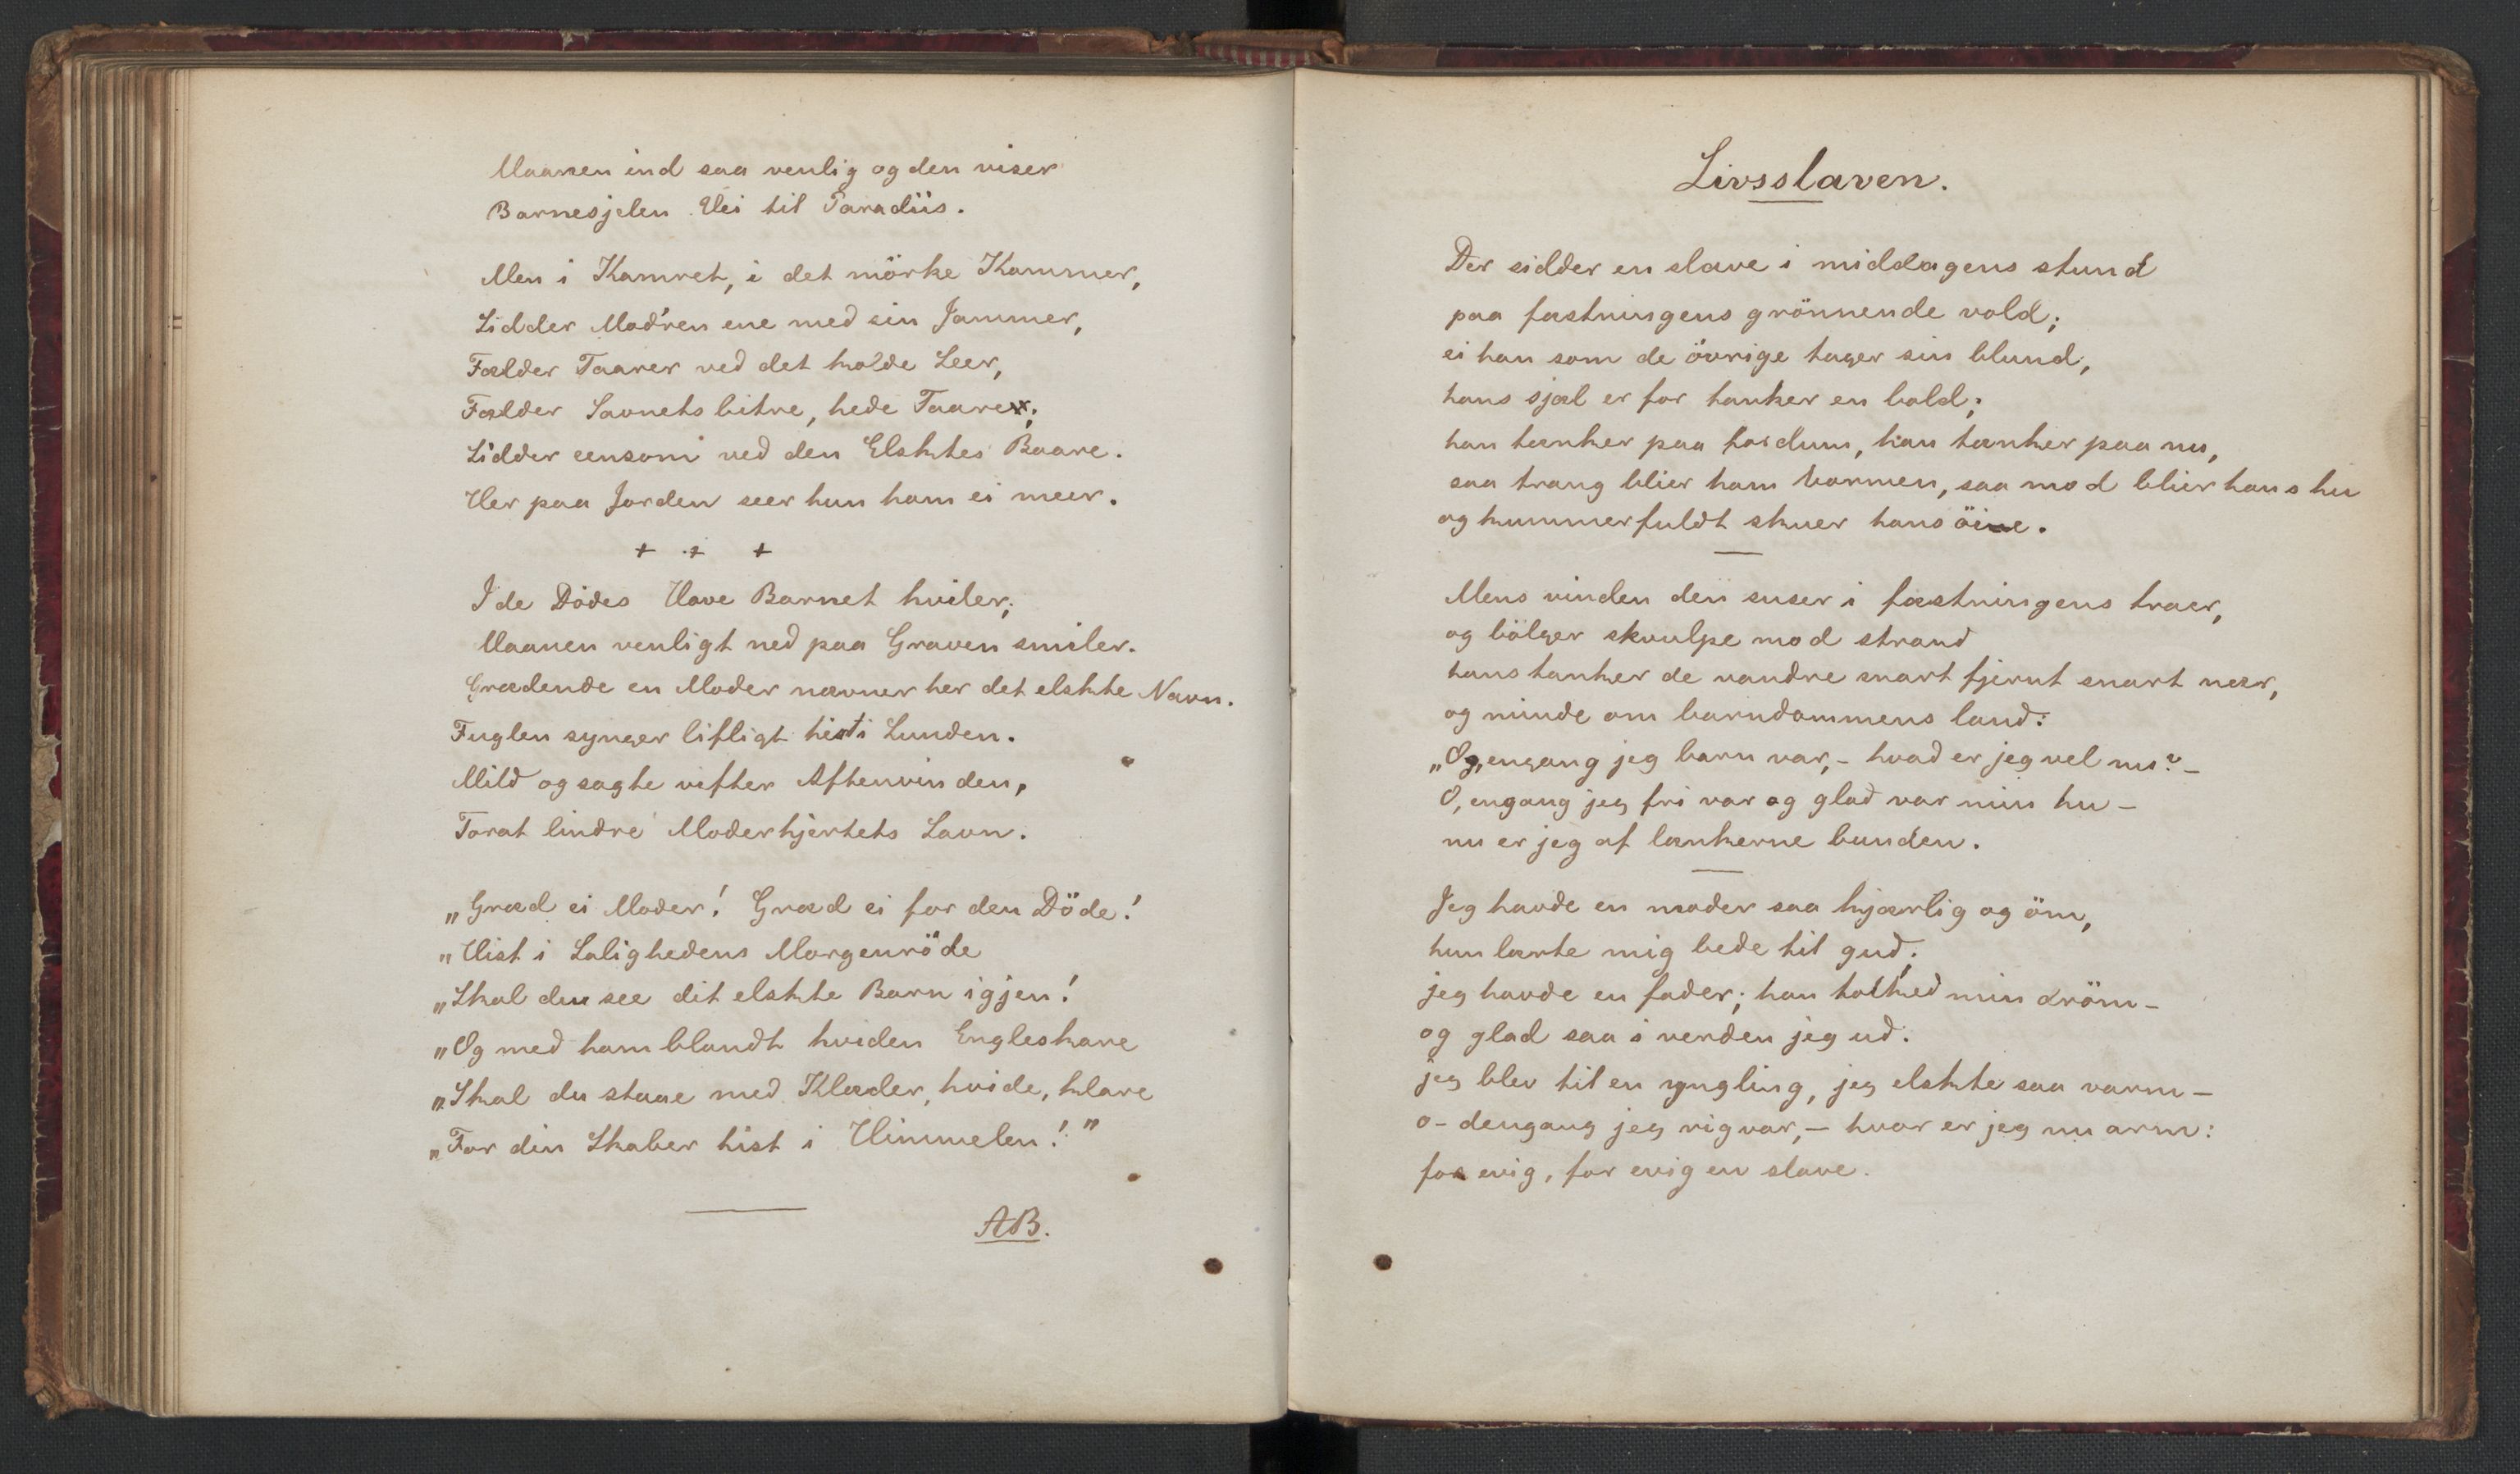 Maanen ind saa venlig og den viser
Barnesjelen Vei til Paradiis.
Men i Kamret, i det mörke Kammer,
Sidder Mod'ren ene med sin Jammer,
Fælder Taarer ved det kolde Leer,
Fælder Savnets bitre, hede Taare;
Sidder eensom ved den Elsktes Baare.
Her paa Jorden seer hun ham ei meer.
+ + +
I de Dödes Have Barnet hviler;
Maanen venligt ned paa Graven smiler.
Grædende en Moder nævner her det elskte Navn.
Fuglen synger lifligt hist i Lunden.
Mild og sagte vifter Aftenvinden,
For at lindre Moderhjertets Savn.
„Græd ei Moder! Græd ei for den Döde!
„Hist i Salighedens Morgenröde
„Skal du see dit elskte Barn igjen!
„Og med ham blandt hviden Engleskare
„Skal du staae med Klæder, hvide, klare
„For din Skaber hist i Himmelen!"
AB.
Livsslaven.
Der sidder en slave i middagens stund
paa fæstningens grönnende vold;
ei han som de övrige tager sin blund,
hans sjæl er for tanker en bold;
han tænker paa fordum, han tænker paa nu,
saa trang blier ham barmen, saa mod blier hans hu
og kummerfuldt skuer hans öie.
Mens vinden den suser i fæstningens træer,
og bölger skvulpe mod strand
hans tanker de vandre snart fjernt snart nær,
og minde om barndommens land:
„O, engang jeg barn var, – hvad er jeg vel nu? –
O, engang jeg fri var og glad var min hu –
nu er jeg af lænkerne bunden.
Jeg havde en moder saa kjærlig og öm,
hun lærte mig bede til gud;
jeg havde en fader; han tolked min dröm –
og glad saa i verden jeg ud.
jeg blev til en yngling, jeg elskte saa varm –
o – dengang jeg rig var, – hvor er jeg nu arm:
for evig, for evig en slave.